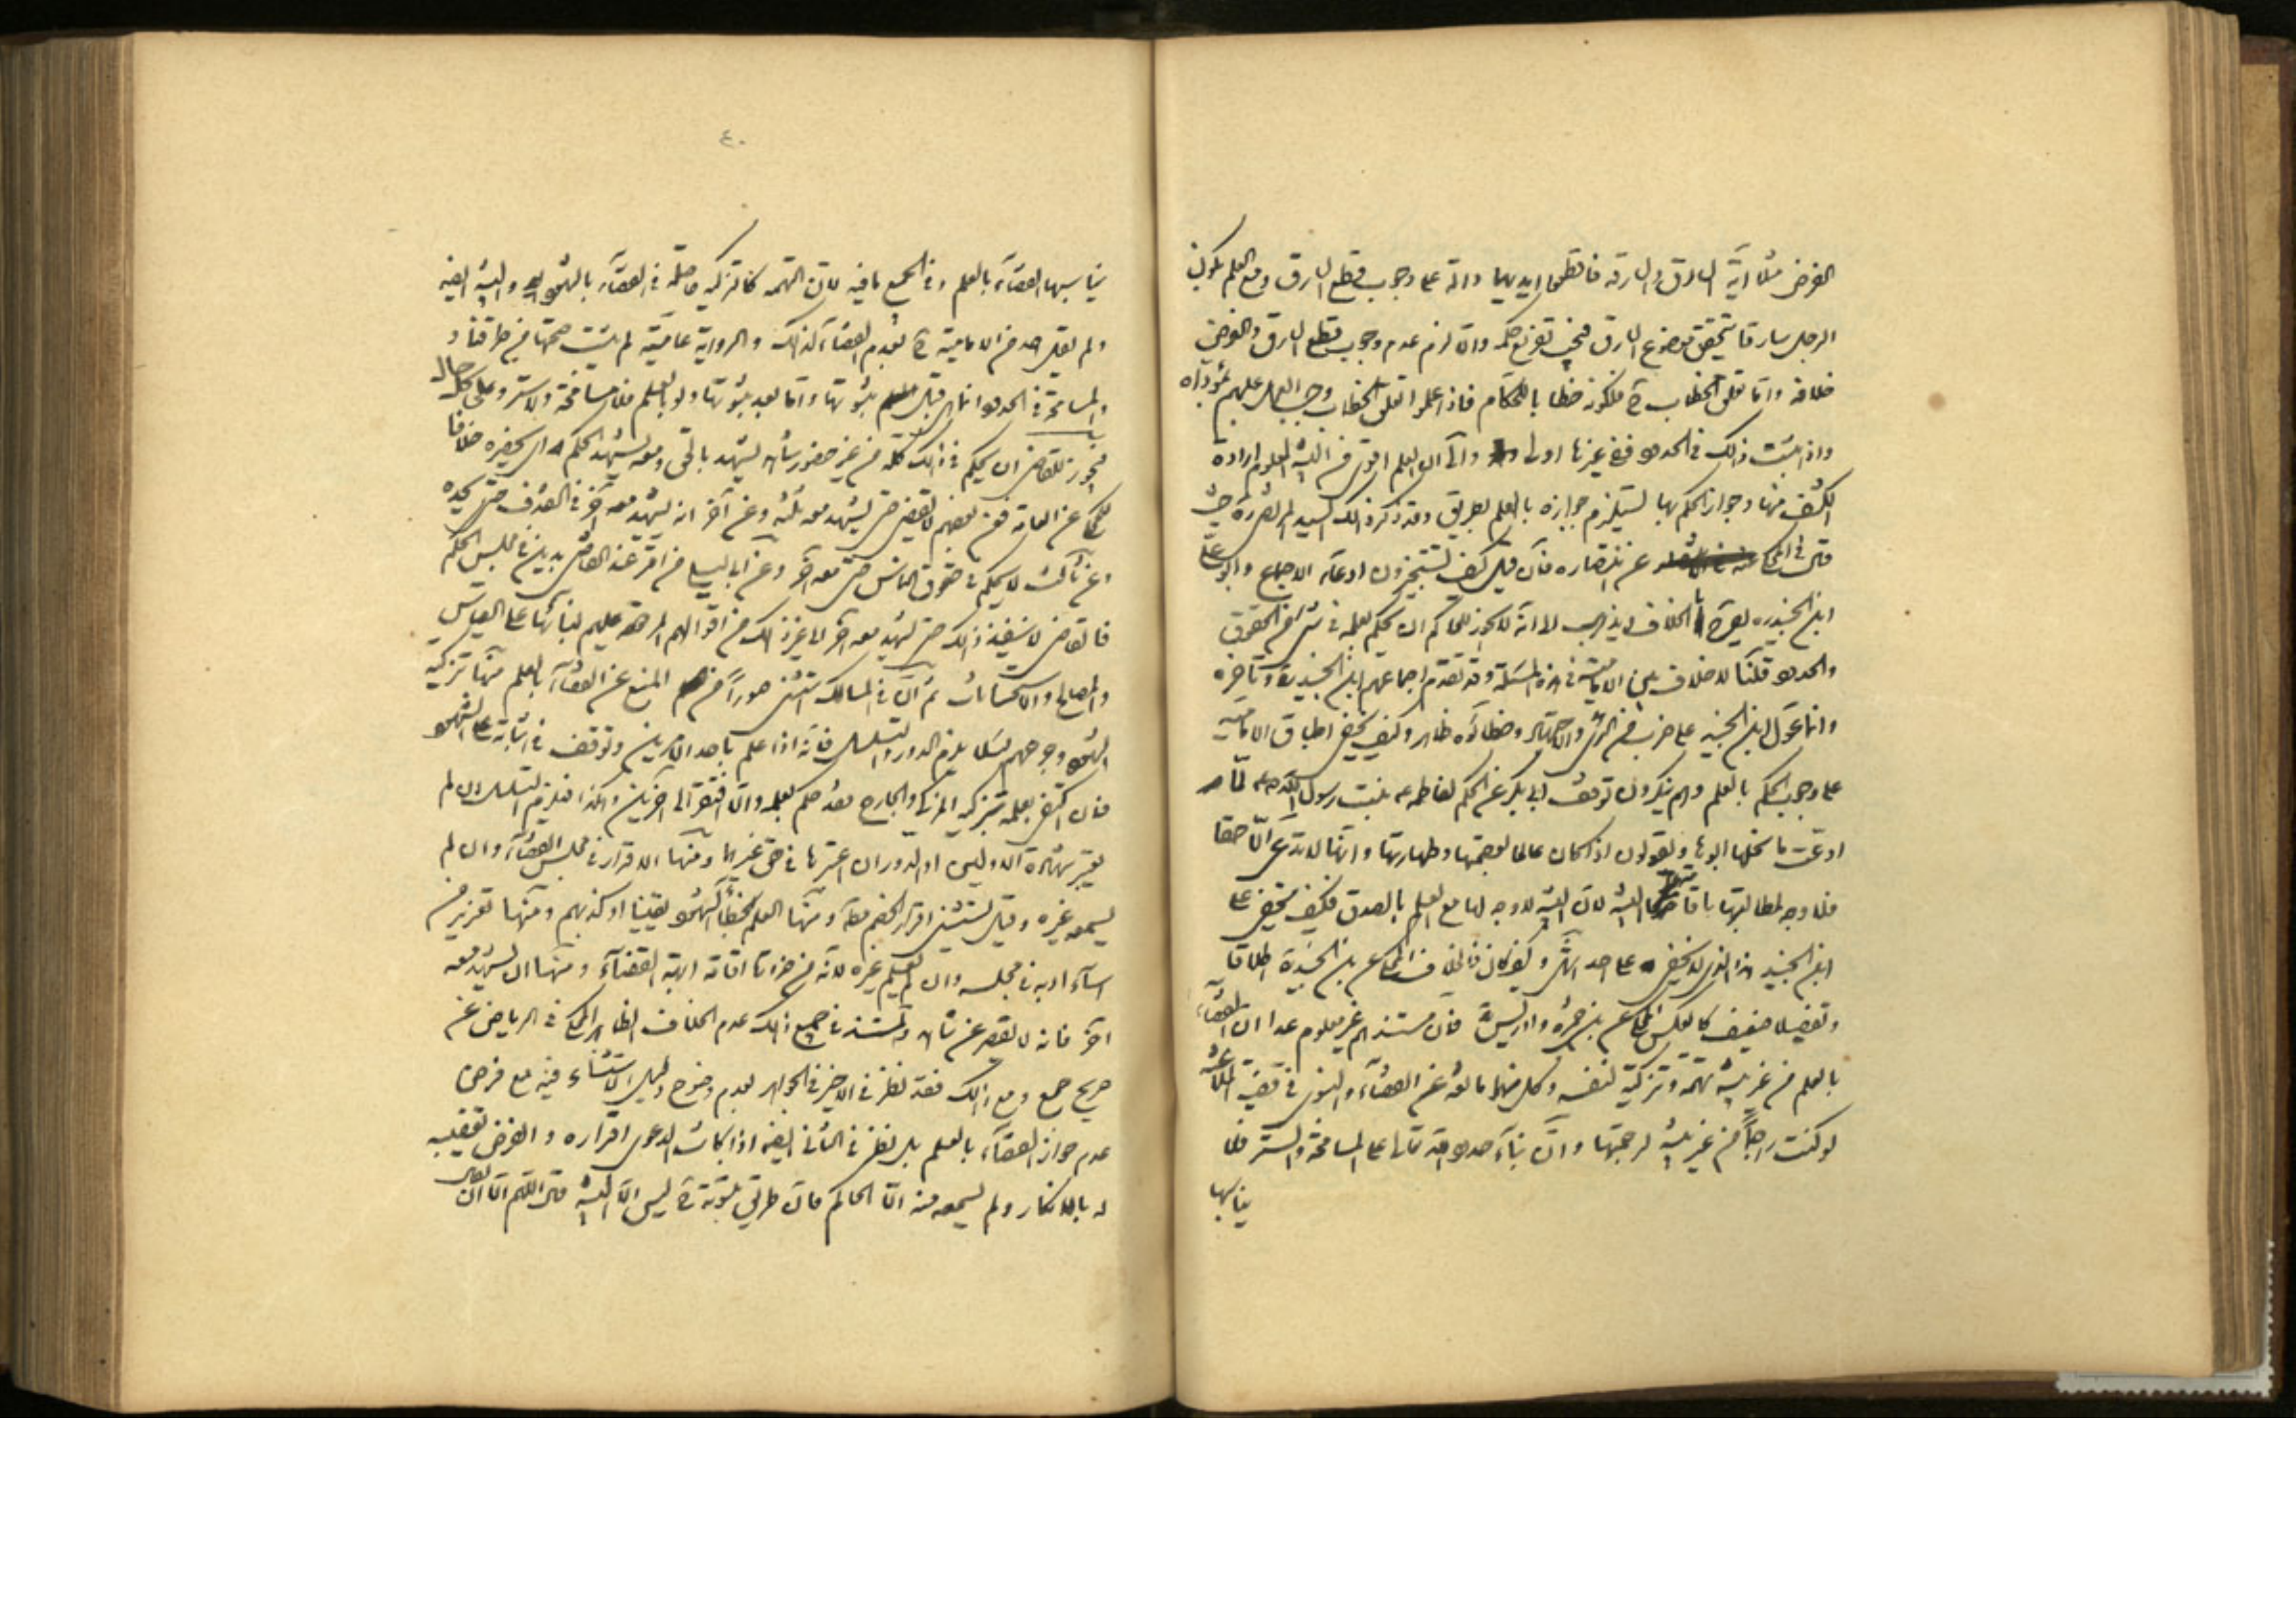 الفرض مثلا آية السارق والسارقة فاقطعوا ايديهما دالة على وجوب قطع السارق ومع العلم بكون
الرجل سارقا يتحقق موضوع السارق فيجب تفريع حكمه والا لزم عدم وجوب قطع السارق والفرض
خلافه وانما تعلق الخطاب ح لكونه خطابا للحكام فاذا علموا تعلق الخطاب وجب العمل عليهم بمؤداه
واذا ثبت ذلك في الحدود ففي غيرها اولى والى ان العلم اقوى من البينة المعلوم ارادة
الكشف منها وجواز الحكم بها يستلزم جوازه بالعلم بطريق وقد ذكر ذلك السيد المرتضى ره حيث
قال في المحكي عن انتصاره فان قيل كيف تستجيزون ادعاء الاجماع وابو علي
ابن الجنيد ره يصرح بالخلاف ويذهب الى انه لا يجوز للحاكم ان يحكم بعلمه في شيء من الحقوق
والحدود قلنا لا خلاف بين الامامية في هذه المسئلة وقد تقدم اجماعهم ابن الجنيد ره وتاخره
وانما عول ابن الجنيد على ضرب من الرأي والاجتهاد وخطاؤه ظاهر وكيف يخفى اطباق الامامية
على وجوب الحكم بالعلم وهم ينكرون توقف ابي بكر عن الحكم لفاطمة ع بنت رسول الله ص لما
ادعت ما نحلها ابوها ويقولون اذا كان عالما بعصمتها وطهارتها وانها لا تدعي الا حقا
فلا وجه لمطالبتها باقامتها البينة لان البينة لا وجه لها مع العلم بالصدق فكيف يخفى على
ابن الجنيد هذا الذي لا يخفى على احد انتهى وكيف كان فالخلاف المحكي عن ابن الجنيد ره اطلاقا
وتفصيلا ضعيف كالعكس المحكي عن ابن حمزه وادريس ره فان مستندهم غير معلوم عدا ان القضاء
بالعلم من غير بينة تهمة وتزكية لنفسه وكل منهما مانعة عن القضاء والنبوي في قضية الملاعنة
لو كنت راجما من غير بينة لرجمتها وان بناء حدود الله تعالى على المسامحة والستر فلا
يناسبها
٤٠
يناسبها القضاء بالعلم وفي الجميع ما فيه لان التهمة كالتزكية حاصلة في القضاء بالشهود والبينة ايضا
ولم يقل احد من الامامية ح بعدم القضاء كذلك والرواية عامية لم يثبت صحتها من طرقنا و
المسامحة في الحدود انما هي قبل ثبوتها واما بعد ثبوتها ولو بالعلم فلا مسامحة ولا ستر وعلى كل حال
فيجوز للقاضي ان يحكم في ذلك كله من غير حضور شاهد يشهد بالحق ومعه يشهد الحكم اي يحضره خلافا
للمحكي عن العامة فعن بعضهم لا يقضي حتى يشهد معه ثلثة وعن آخر انه يشهد معه آخر في القذف حتى يحده
وعن ثالث لا يحكم في حقوق الناس حتى معه آخر وعن ابي ليلى من اقر عند القاضي بدين في مجلس الحكم
فالقاضي لا ينفذ ذلك حتى يشهد معه آخر الى غير ذلك من اقوالهم المردودة عليهم لبنائها على القياس
والمصالح والاستحسانات ثم ان في المسالك استثنى صورا من المنع عن القضاء بالعلم منها تزكية
الشهود وجرحهم لئلا يلزم الدور والتسلسل فانه اذا علم باحد الامرين وتوقف في اثباته على الشهود
فان اكتفى بعلمه بتزكية المزكي والجارح فقد حكم بعلمه والا افتقر الى آخرين وهكذا فيلزم التسلسل ان لم
يعتبر شهادة الاوليين او الدور ان اعتبرها في حق غيرهما ومنها الاقرار في مجلس القضاء وان لم
يسمعه غيره وقيل يستثنى اقرار الخصم مطلقا ومنها العلم بخطأ الشهود يقينا او كذبهم ومنها تعزير من
اساء ادبه في مجلسه وان لم يعلم غيره لانه من ضرورة اقامة ابهة القضاء ومنها ان يشهد معه
آخر فانه لا يقصر عن شاهد والمستند في جميع ذلك عدم الخلاف الظاهر المحكي في الرياض عن
صريح جمع ومع ذلك فقد نظر في الاخير في الجواهر لعدم وضوح دليل الاستثناء فيه مع فرض
عدم جواز القضاء بالعلم بل نظر في الثاني ايضا اذا كانت الدعوى اقراره والفرض تعقيبه
له بالانكار ولم يسمعه منه الا الحاكم فان طريق ثبوته ح ليس الا البينة قال اللهم الا ان يقال